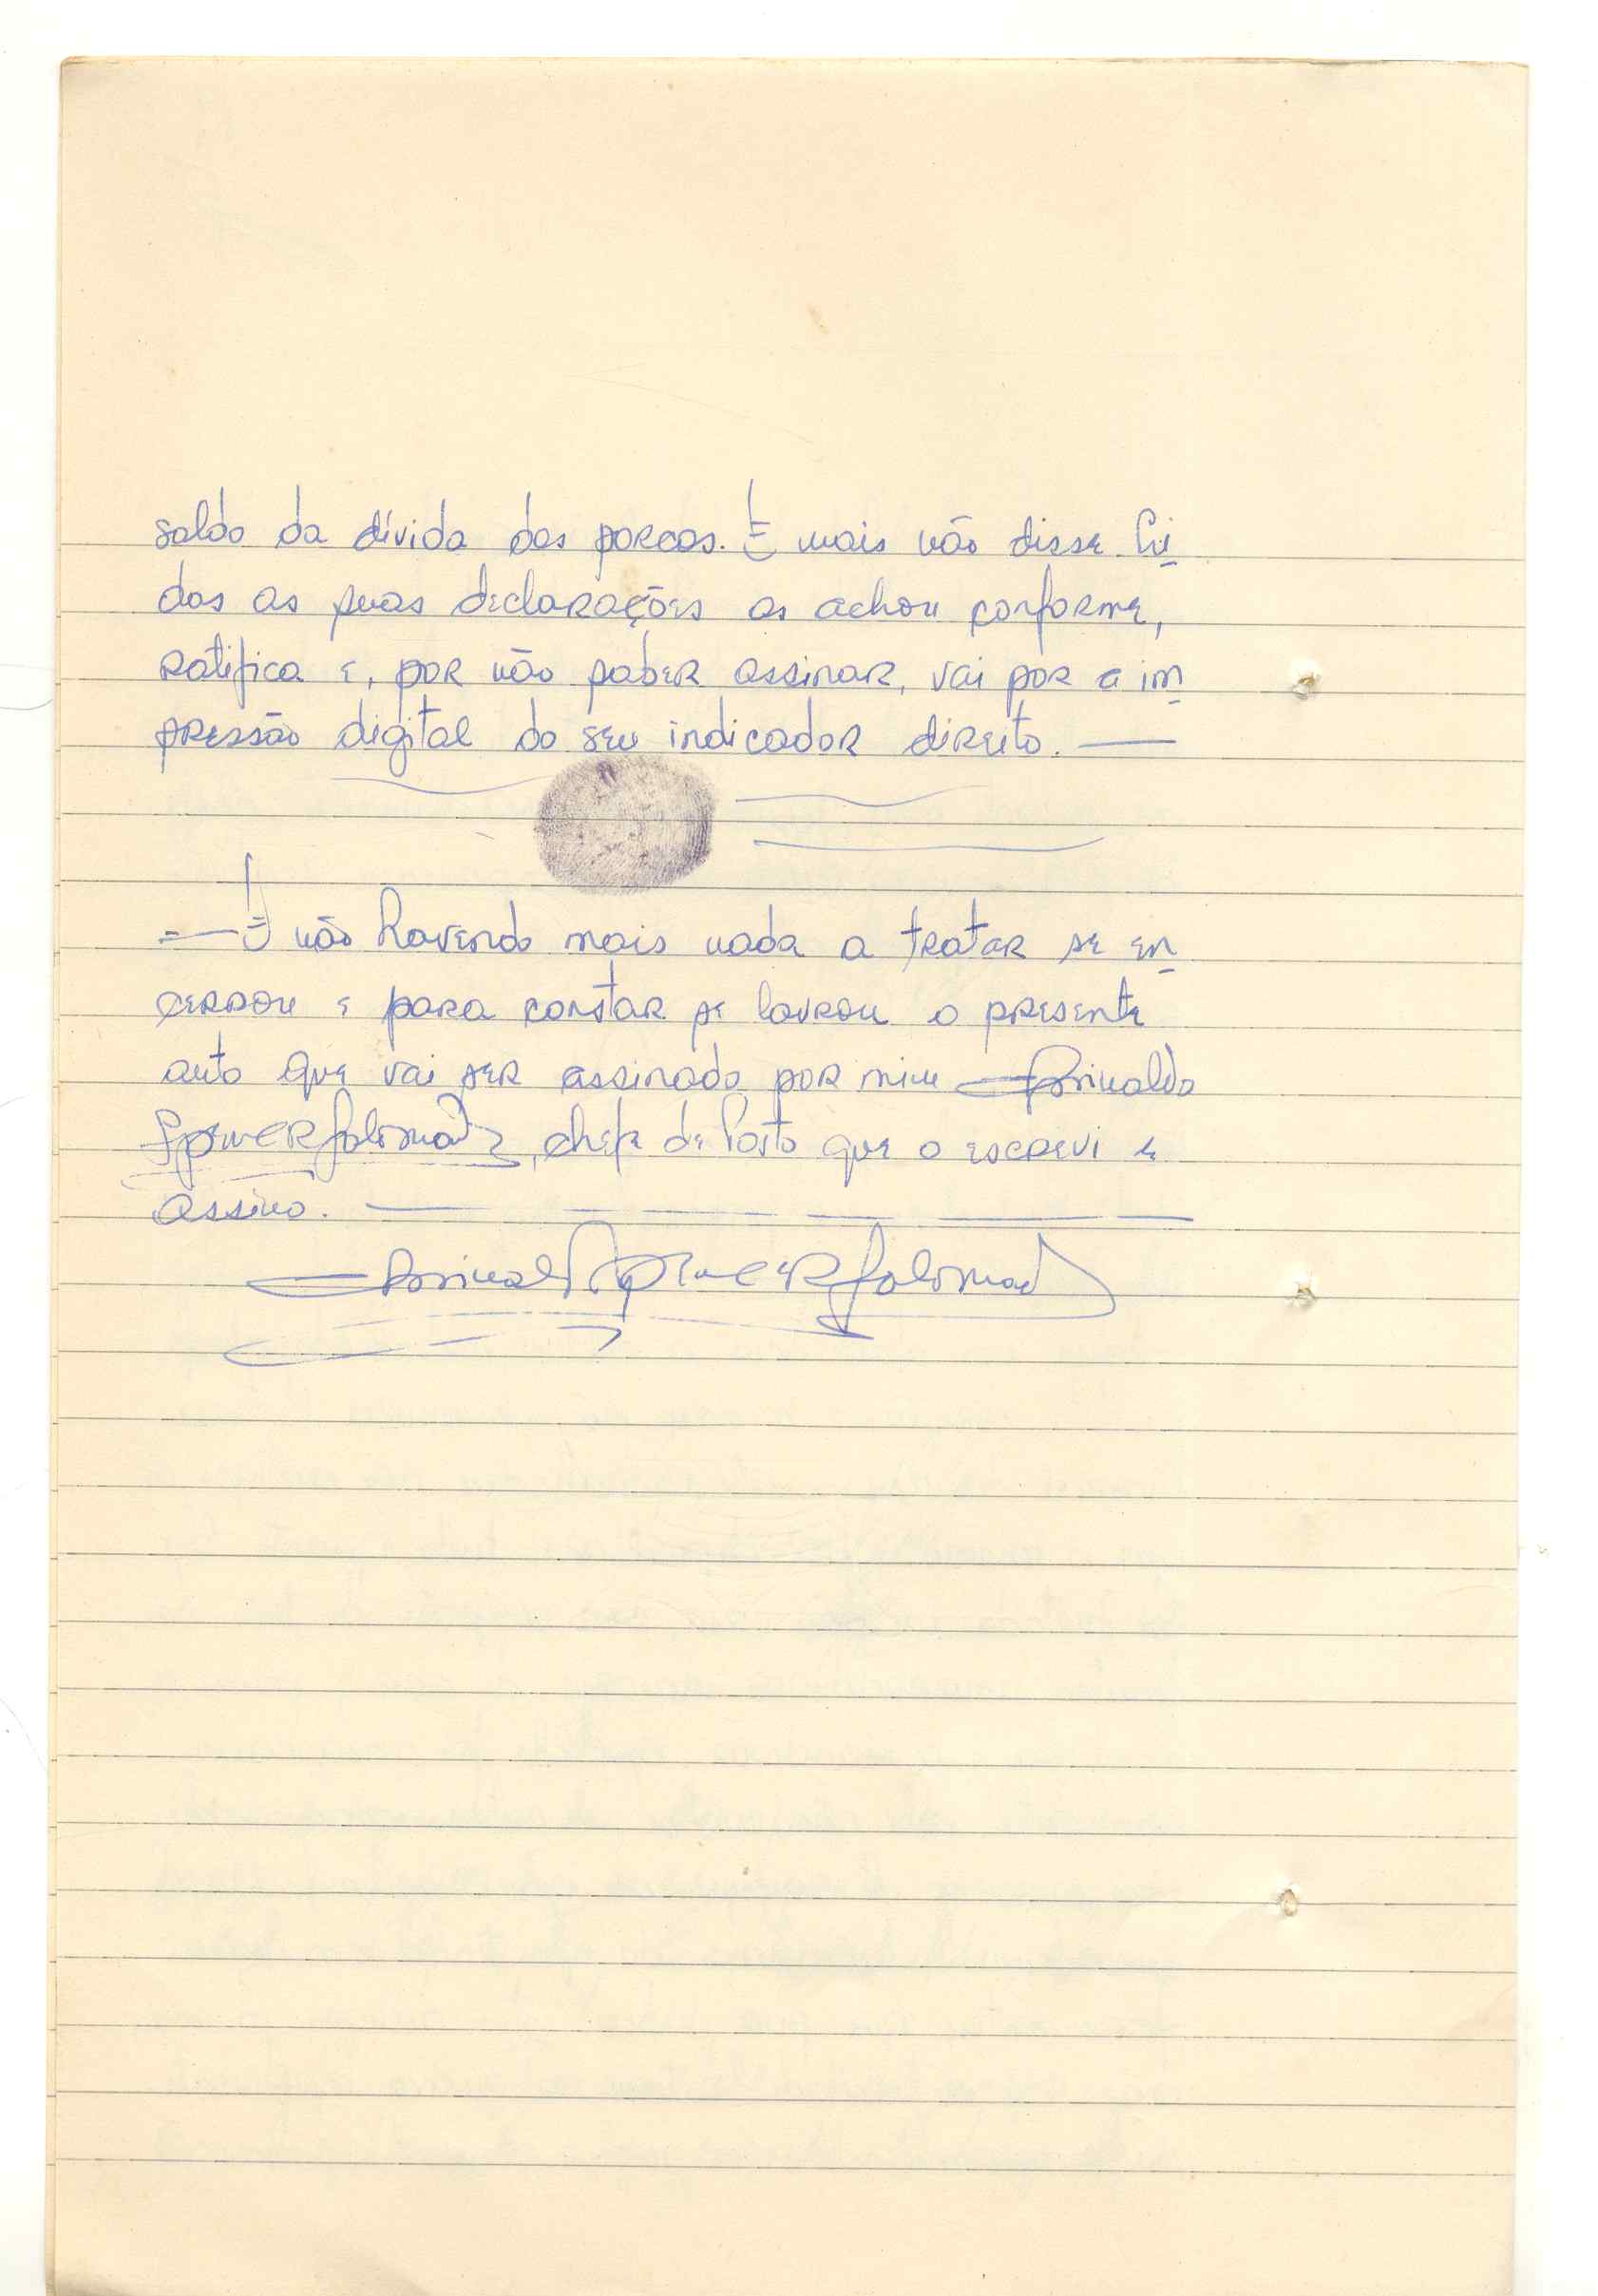 saldo da dívida dos porcos. E mais não disse. Li
das as suas declarações as achou conforme,
ratifica e, por não saber assinar, vai por a im
pressão digital do seu indicador direito. —
— E não havendo mais nada a tratar se en
cerrou e para constar se lavrou o presente
auto que vai ser assinado por mim
, chefe de Posto que o escrevi e
assino. —